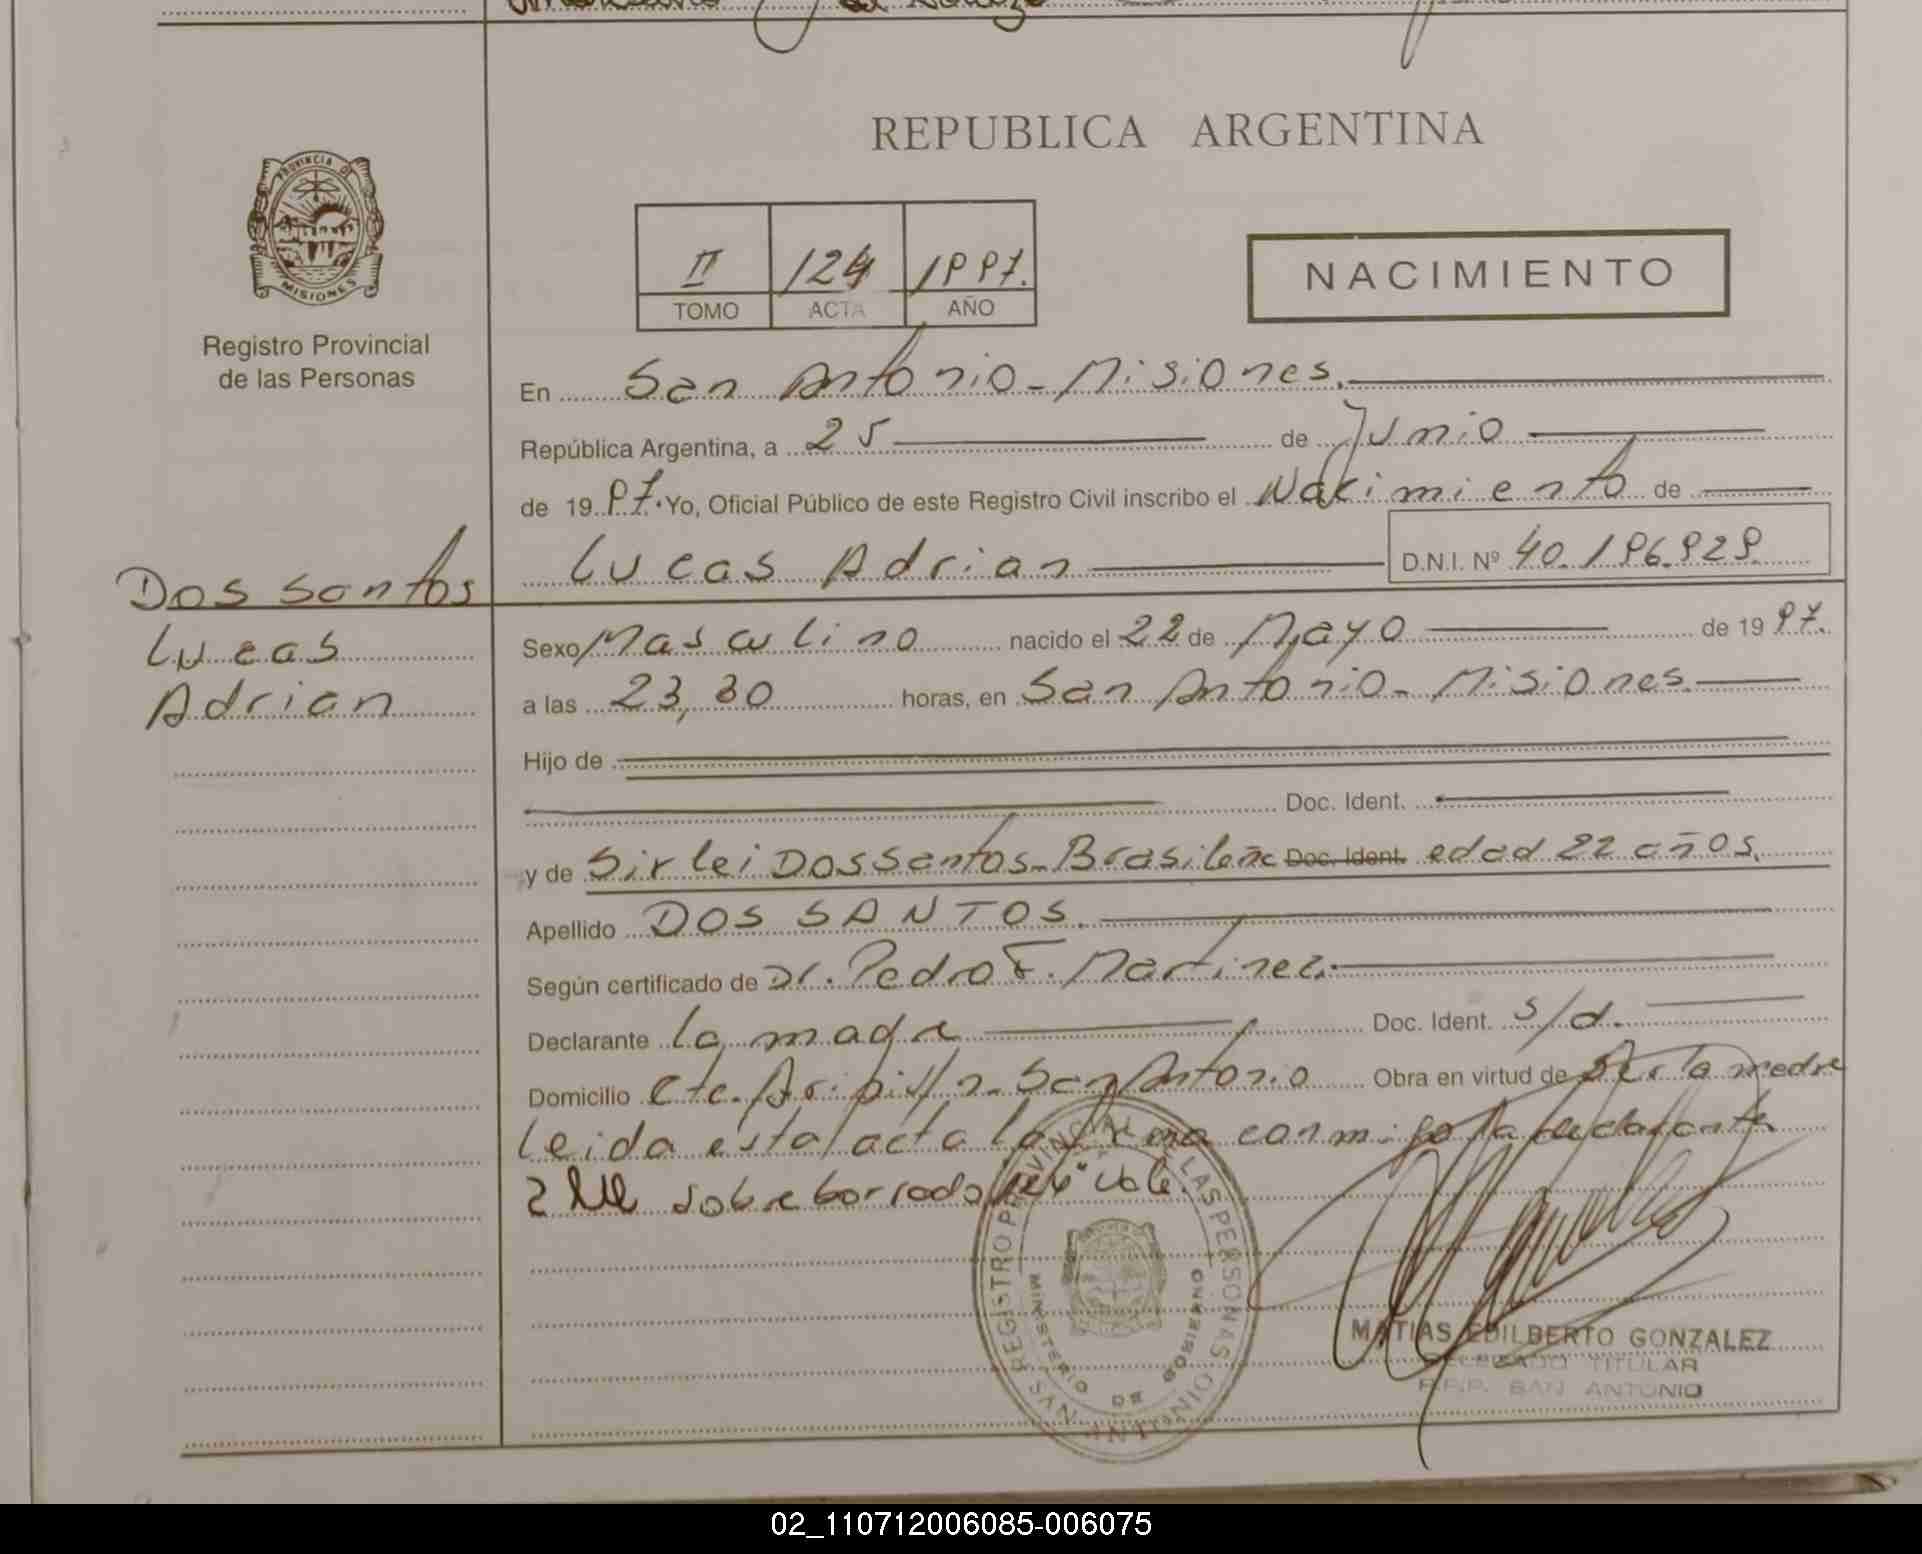 REPUBLICA ARGENTINA
PROVINCIA DE
MISIONES
Registro Provincial
de las Personas
II 124 1997.
TOMO ACTA AÑO
NACIMIENTO
En San Antonio - Misiones.
República Argentina, a 25 de Junio
de 19 97. Yo, Oficial Público de este Registro Civil inscribo el Nacimiento de
Lucas Adrian D.N.I. Nº 40.196.929.
Dos santos
Lucas
Adrian
Sexo Masculino nacido el 22 de Mayo de 19 97.
a las 23,30 horas, en San Antonio - Misiones.
Hijo de
Doc. Ident.
y de Sirlei Dos Santos - Brasileña Doc. Ident. edad 22 años.
Apellido DOS SANTOS.
Según certificado de Dr. Pedro F. Martinez.
Declarante la madre Doc. Ident. s/d.
Domicilio Cte. s/n - San Antonio Obra en virtud de ser la madre
Leida esta acta la firma conmigo la declarante
sobreborrado "124" vale.
REGISTRO PROVINCIAL DE LAS PERSONAS
MINISTERIO DE GOBIERNO
SAN ANTONIO
MATIAS EDILBERTO GONZALEZ
DELEGADO TITULAR
R.P.P. SAN ANTONIO
02_110712006085-006075